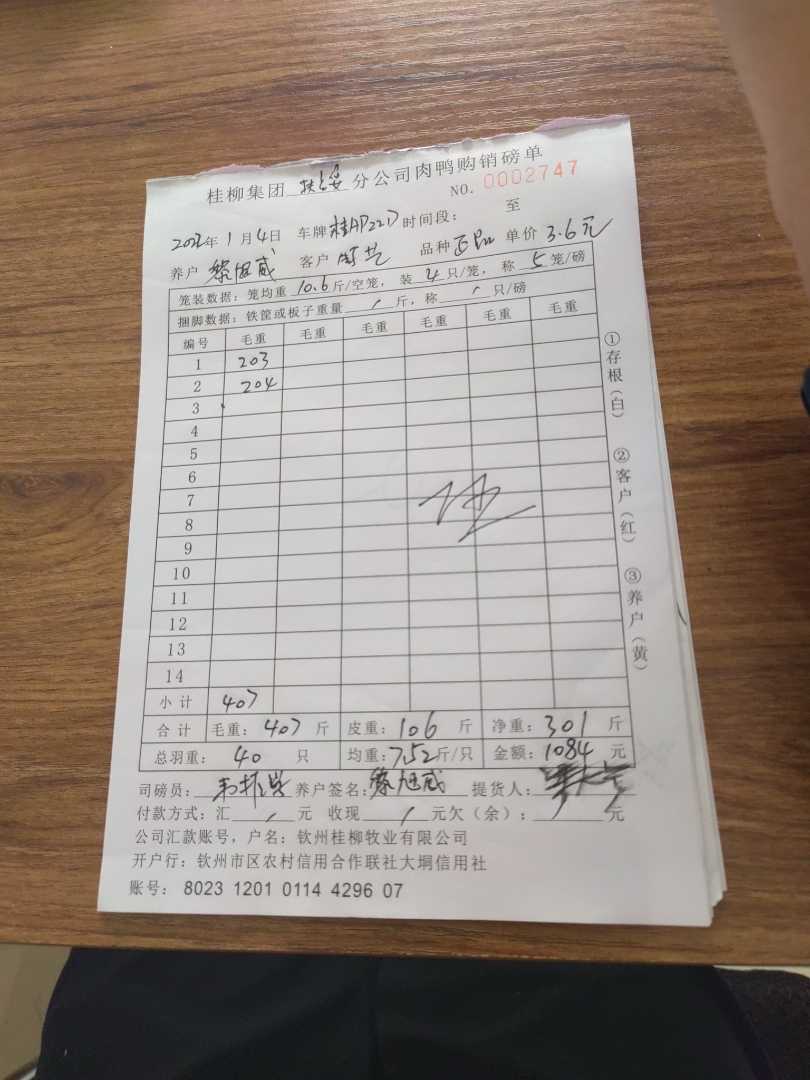 桂柳集团 扶绥 分公司肉鸭购销磅单
NO. 0002747
年 1 月 4 日 车牌 时间段: 至
养户 黎旭威 客户 品种 正品 单价 3.6元
笼装数据: 笼均重 10.6 斤/空笼, 装 4 只/笼, 称 5 笼/磅
捆脚数据: 铁筐或板子重量 / 斤, 称 / 只/磅
编号 毛重 毛重 毛重 毛重 毛重 毛重
1 203
2 204
3
4
5
6
7
8
9
10
11
12
13
14
小计 407
合计 毛重: 407 斤 皮重: 106 斤 净重: 301 斤
总羽重: 40 只 均重: 7.52 斤/只 金额: 1084 元
司磅员: 养户签名: 黎旭威 提货人:
付款方式: 汇 / 元 收现 / 元欠(余): 元
公司汇款账号, 户名: 钦州桂柳牧业有限公司
开户行: 钦州市区农村信用合作联社大垌信用社
账号: 8023 1201 0114 4296 07
①存根(白) ②客户(红) ③养户(黄)